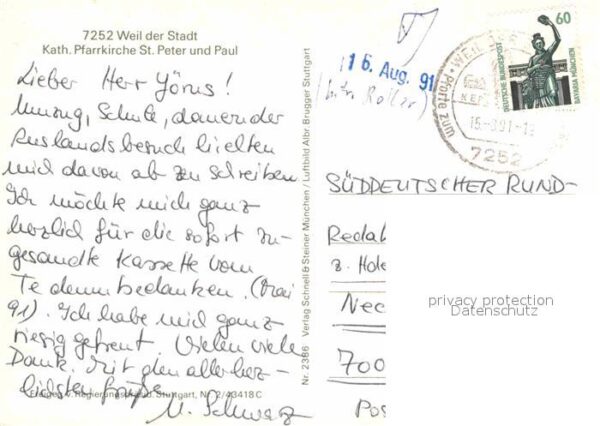 7252 Weil der Stadt
Kath. Pfarrkirche St. Peter und Paul
Lieber Herr Yörus!
Umzug, Schule, dauernder
Auslandsbesuch hielten
mich davon ab zu schreiben
Ich möchte mich ganz
herzlich für die sofort zu-
gesandte Kassette vom
Te deum bedanken. (Mai
91). Ich habe mich ganz
riesig gefreut. Vielen vielen
Dank. Mit den allerherz-
lichsten Grüßen
U. Schwarz
Freigeg. v. Regierungspräsid. Stuttgart, Nr. 2/43418 C
Nr. 2386 Verlag Schnell & Steiner München / Luftbild Albr. Brugger Stuttgart
16. Aug. 91
Roller)
WEIL
Pforte zum
15.-8.91-
7252
60
DEUTSCHE BUNDESPOST
BAVARIA MÜNCHEN
SÜDDEUTSCHER RUND-
Redak
z. H
Nec
700
Pos
privacy protection
Datenschutz